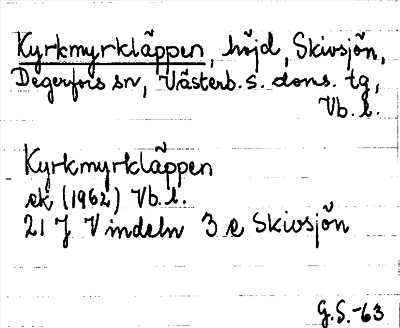 Kyrkmyrkläppen, höjd, Skivsjön,
Degerfors sn, Västerb. s. doms. tg,
Vb. l.
Kyrkmyrkläppen
ek (1962) Vb. l.
21 J Vindeln 3 e Skivsjön
G.S.-63